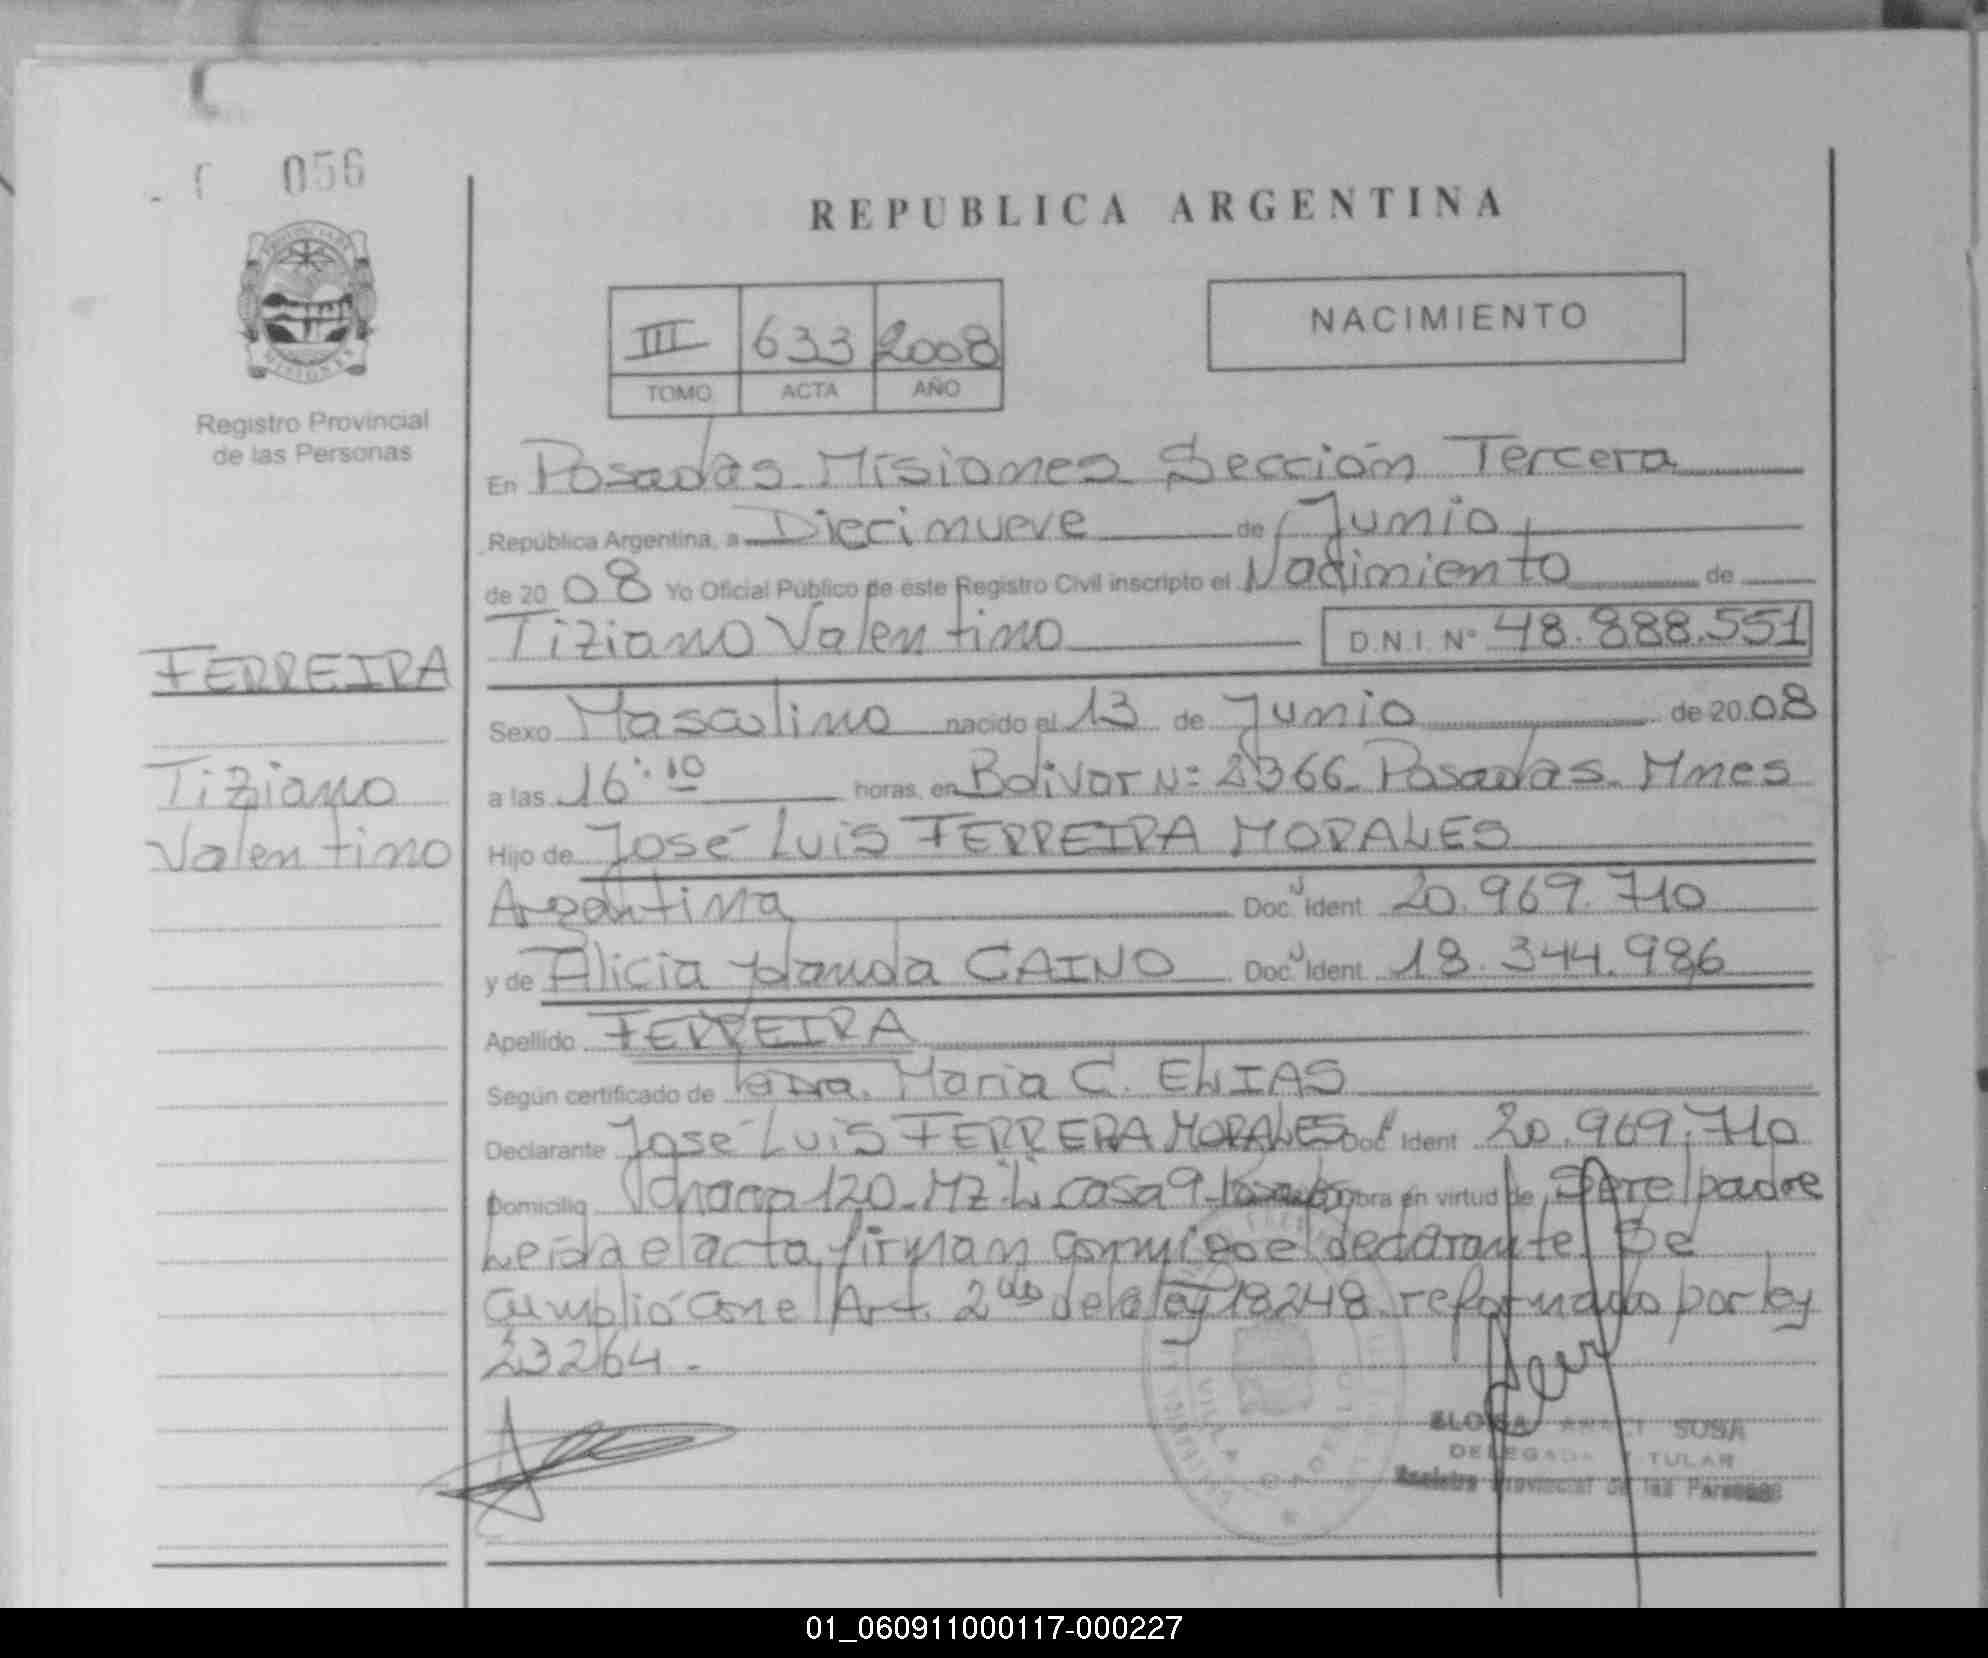 056
REPUBLICA ARGENTINA
III 633 2008
TOMO ACTA AÑO
NACIMIENTO
Registro Provincial
de las Personas
En Posadas Misiones Sección Tercera
República Argentina, a Diecinueve de Junio
de 2008 Yo Oficial Público de este Registro Civil inscripto el Nacimiento de
Tiziano Valentino D.N.I. Nº 48.888.551
FERREIRA
Sexo Masculino nacido el 13 de Junio de 2008
Tiziano
a las 16:10 horas, en Bolivar Nº 2366 Posadas Mnes
Valentino
Hijo de José Luis FERREIRA MORALES
Argentina Doc. Ident 20.969.710
y de Alicia Yolanda CAINO Doc. Ident. 18.344.986
Apellido FERREIRA
Según certificado de la Dra. Maria C. ELIAS
Declarante José Luis FERRERA MORALES Doc Ident 20.969.710
Domicilio chacra 120 Mz L casa 9 obra en virtud de Ser el padre
Leida el acta firman conmigo el declarante Se
Cumplió con el Art. 2do de la ley 18248 reformado por ley
23264.-
ELOISA ARACI SOSA
DELEGADA TITULAR
Registro Provincial de las Personas
01_060911000117-000227